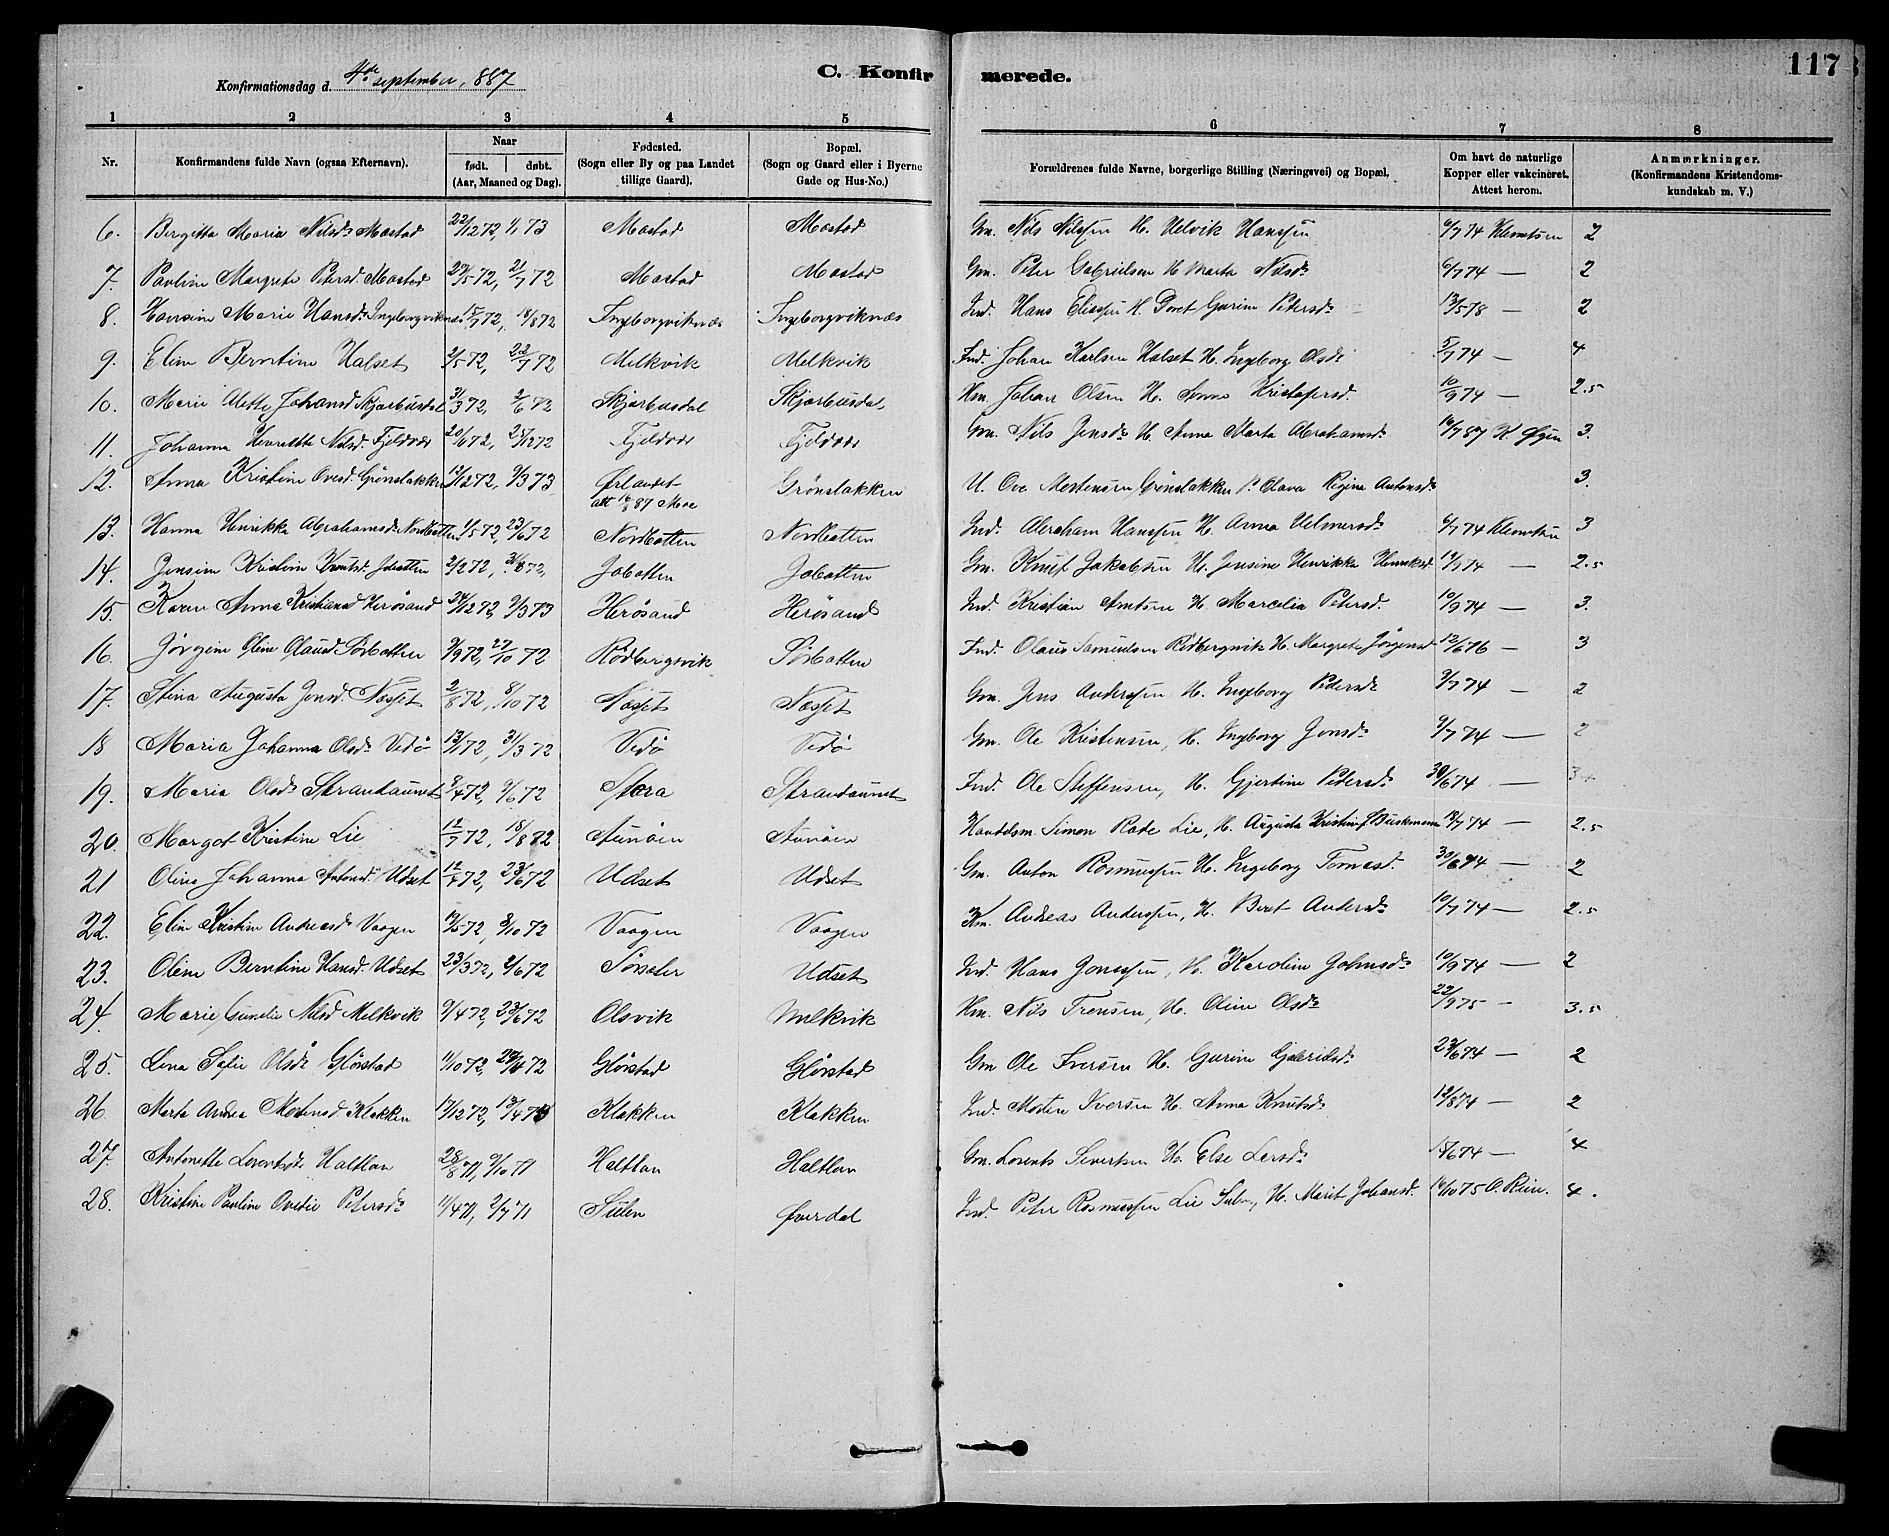 117
C. Konfirmerede.
Konfirmationsdag d. 4de september, 1887
1 2 3 4 5 6 7 8
Nr. Konfirmandens fulde Navn (ogsaa Efternavn). Naar født. døbt. (Aar, Maaned og Dag). Fødested. (Sogn eller By og paa Landet tillige Gaard). Bopæl. (Sogn og Gaard eller i Byerne Gade og Hus-No.) Forældrenes fulde Navne, borgerlige Stilling (Næringsvei) og Bopæl. Om havt de naturlige Kopper eller vakcineret. Attest herom. Anmærkninger. (Konfirmandens Kristendomskundskab m. V.)
6. Bergitta Maria Nilsd. Mastad 22/12 72, 1/1 73 Mastad Mastad Gm. Nils Nilssen H. Helvik Hanssen 6/7 74 Klemtsen 2
7. Pauline Margrete Petersd. Mastad 29/5 72, 21/7 72 Mastad Mastad Gm. Peter Gabrielsen H Marta Nilsd. 6/7 74 — 2
8. Hansine Marie Hansd. Ingeborgviknæs 15/7 72, 18/8 72 Ingeborgviknæs Ingeborgviknæs Ind. Hans Elissen H. Doret Gurine Petersd. 13/5 78 — 2
9. Eline Berntine Halset 2/5 72, 22/7 72 Melkvik Melkvik Ind. Johan Karlsen Halset H. Ingeborg Olsd. 5/7 74 — 4
10. Marie Alette Johansd. Skjærbusdal 3/3 72, 2/6 72 Skjærbusdal Skjærbusdal Hm. Johan Olsen H. Anna Kristofersd. 10/9 74 — 2.5
11. Johanna Henrette Nilsd. Fjeldvær 20/6 72, 25/12 72 Fjeldvær Fjeldvær Gm. Nils Jensd. H. Anna Marta Abrahamsd. 16/7 87 K Øyen 3.
12. Anna Kristine Ovesd. Grønslakken 12/12 72, 9/3 73 Ørlandet Grønslakken U. Ove Mortensen Grønslakken P. Olava Regine Antonsd. 3.
att 16/8 87 Moe
13. Hanna Henrikke Abrahamsd. Nordbotten 1/5 72, 23/6 72 Nordbotten Nordbotten Ind. Abraham Hanssen H. Anna Helmersd. 6/7 74 Klemtsen 3
14. Jensine Kristine Knutsd. Jøbotten 2/2 72, 31/3 72, Jøbotten Jøbotten Gm. Knut Jakobsen H. Jensine Henrikke Henriksd. 10/9 74 — 2.5
15. Karen Anna Kristiansd. Herøsand 24/12 72, 9/3 73 Herøsand Herøsand Ind. Kristian Arntsen H. Marcelia Petersd. 10/9 74 — 3.
16. Jørgine Oline Olausd. Sørbotten 3/9 72, 27/10 72 Rødbergsvik Sørbotten Ind. Olaus Samuelsen Rødbergsvik H. Margrete Jørgensd. 12/6 76 — 3
17. Stina Augusta Jensd. Næsset 2/8 72, 8/10 72 Næsset Næsset Gm. Jens Anderssen H. Ingeborg Pedersd. 3/7 74 — 2
18 Maria Johanna Olsd. Vedø 13/1 72, 31/3 72 Vedø Vedø Gm. Ole Kristensen, H. Ingeborg Jensd. 9/7 74 — 2
19. Maria Olsd. Strandaunet 8/4 72, 9/6 72 Støra Strandaunet Ind. Ole Steffensen, H. Gjertine Petersd. 30/6 74 — 3
20. Margot Kristine Lie 12/7 72, 18/8 82 Aunøien Aunøien Handelsm. Simon Rade Lie, H. Augusta Kristine f. Buskmann 18/7 74 — 2.5
21 Olina Johanna Antonsd. Udset 12/4 72, 23/6 72 Udset Udset Gm. Anton Rasmussen H. Ingeborg Tomasd. 30/6 74 — 2
22. Eline Kristine Andreasd. Vaagen 19/5 72, 8/10 72 Vaagen Vaagen Hm. Andreas Anderssen, H. Beret Andersd. 10/7 74 — 2.5
23. Oline Berntine Hansd. Udset 23/3 72, 2/6 72 Sørseter Udset Ind. Hans Jonassen, H. Karoline Johnsd. 10/9 74 — 2
24. Marie Gunelie Nilsd. Melkvik 9/4 72, 23/6 72 Olsvik Melkvik Hm. Nils Trensen, H. Oline Olsd. 22/9 75 - 3.5
25. Lena Sofie Olsd. Glørstad 11/10 72, 29/11 72 Glørstad Glørstad Gm Ole Iversen H. Gurine Gabrielsd. 23/6 74 — 2
26. Marta Andrea Mortensd. Klakken 17/12 72, 13/4 73 Klakken Klakken Ind. Morten Iversen H. Anna Knutsd. 12/8 74 — 2
27. Antonette Lorentsd. Haltlan 28/8 71, 9/10 71 Haltlan Haltlan Gm. Lorents Sivertsen H. Else Larsd. 18/6 74 — 4
28. Kristine Pauline Ovedie Petersd. 11/4 71, 2/7 71 Sulen Øverdal Ind. Peter Rasmussen Lie Sulen, H. Marit Johansd. 16/10 75 O. Rian. 4.